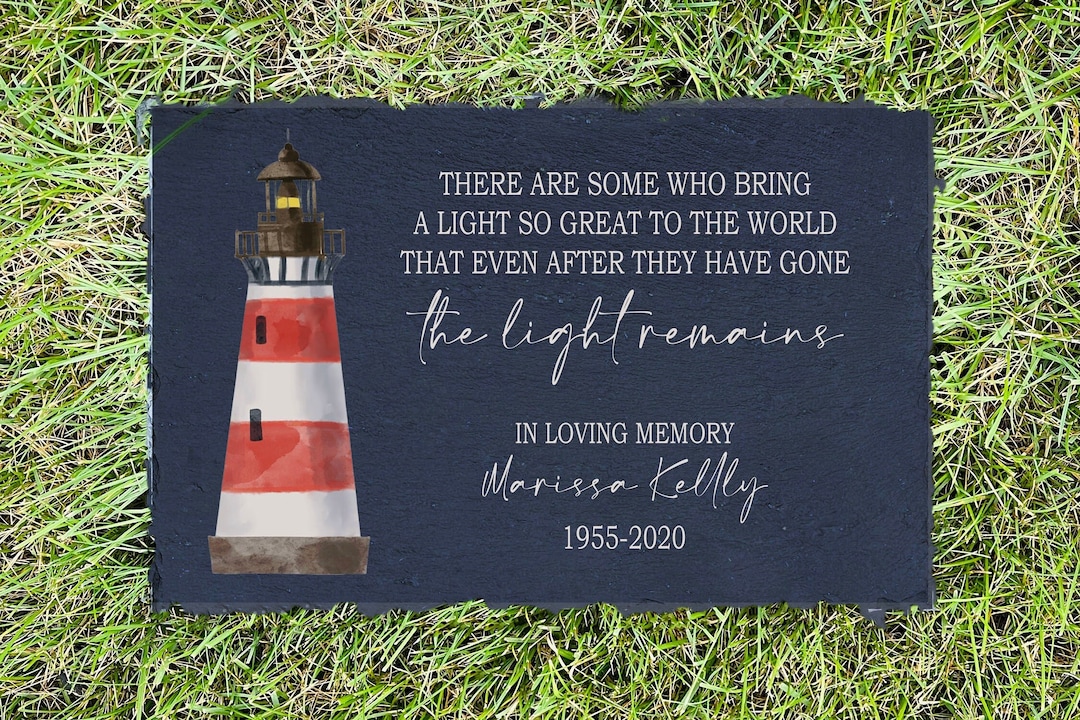 THERE ARE SOME WHO BRING
A LIGHT SO GREAT TO THE WORLD
THAT EVEN AFTER THEY HAVE GONE
the light remains
IN LOVING MEMORY
Marissa Kellly
1955-2020